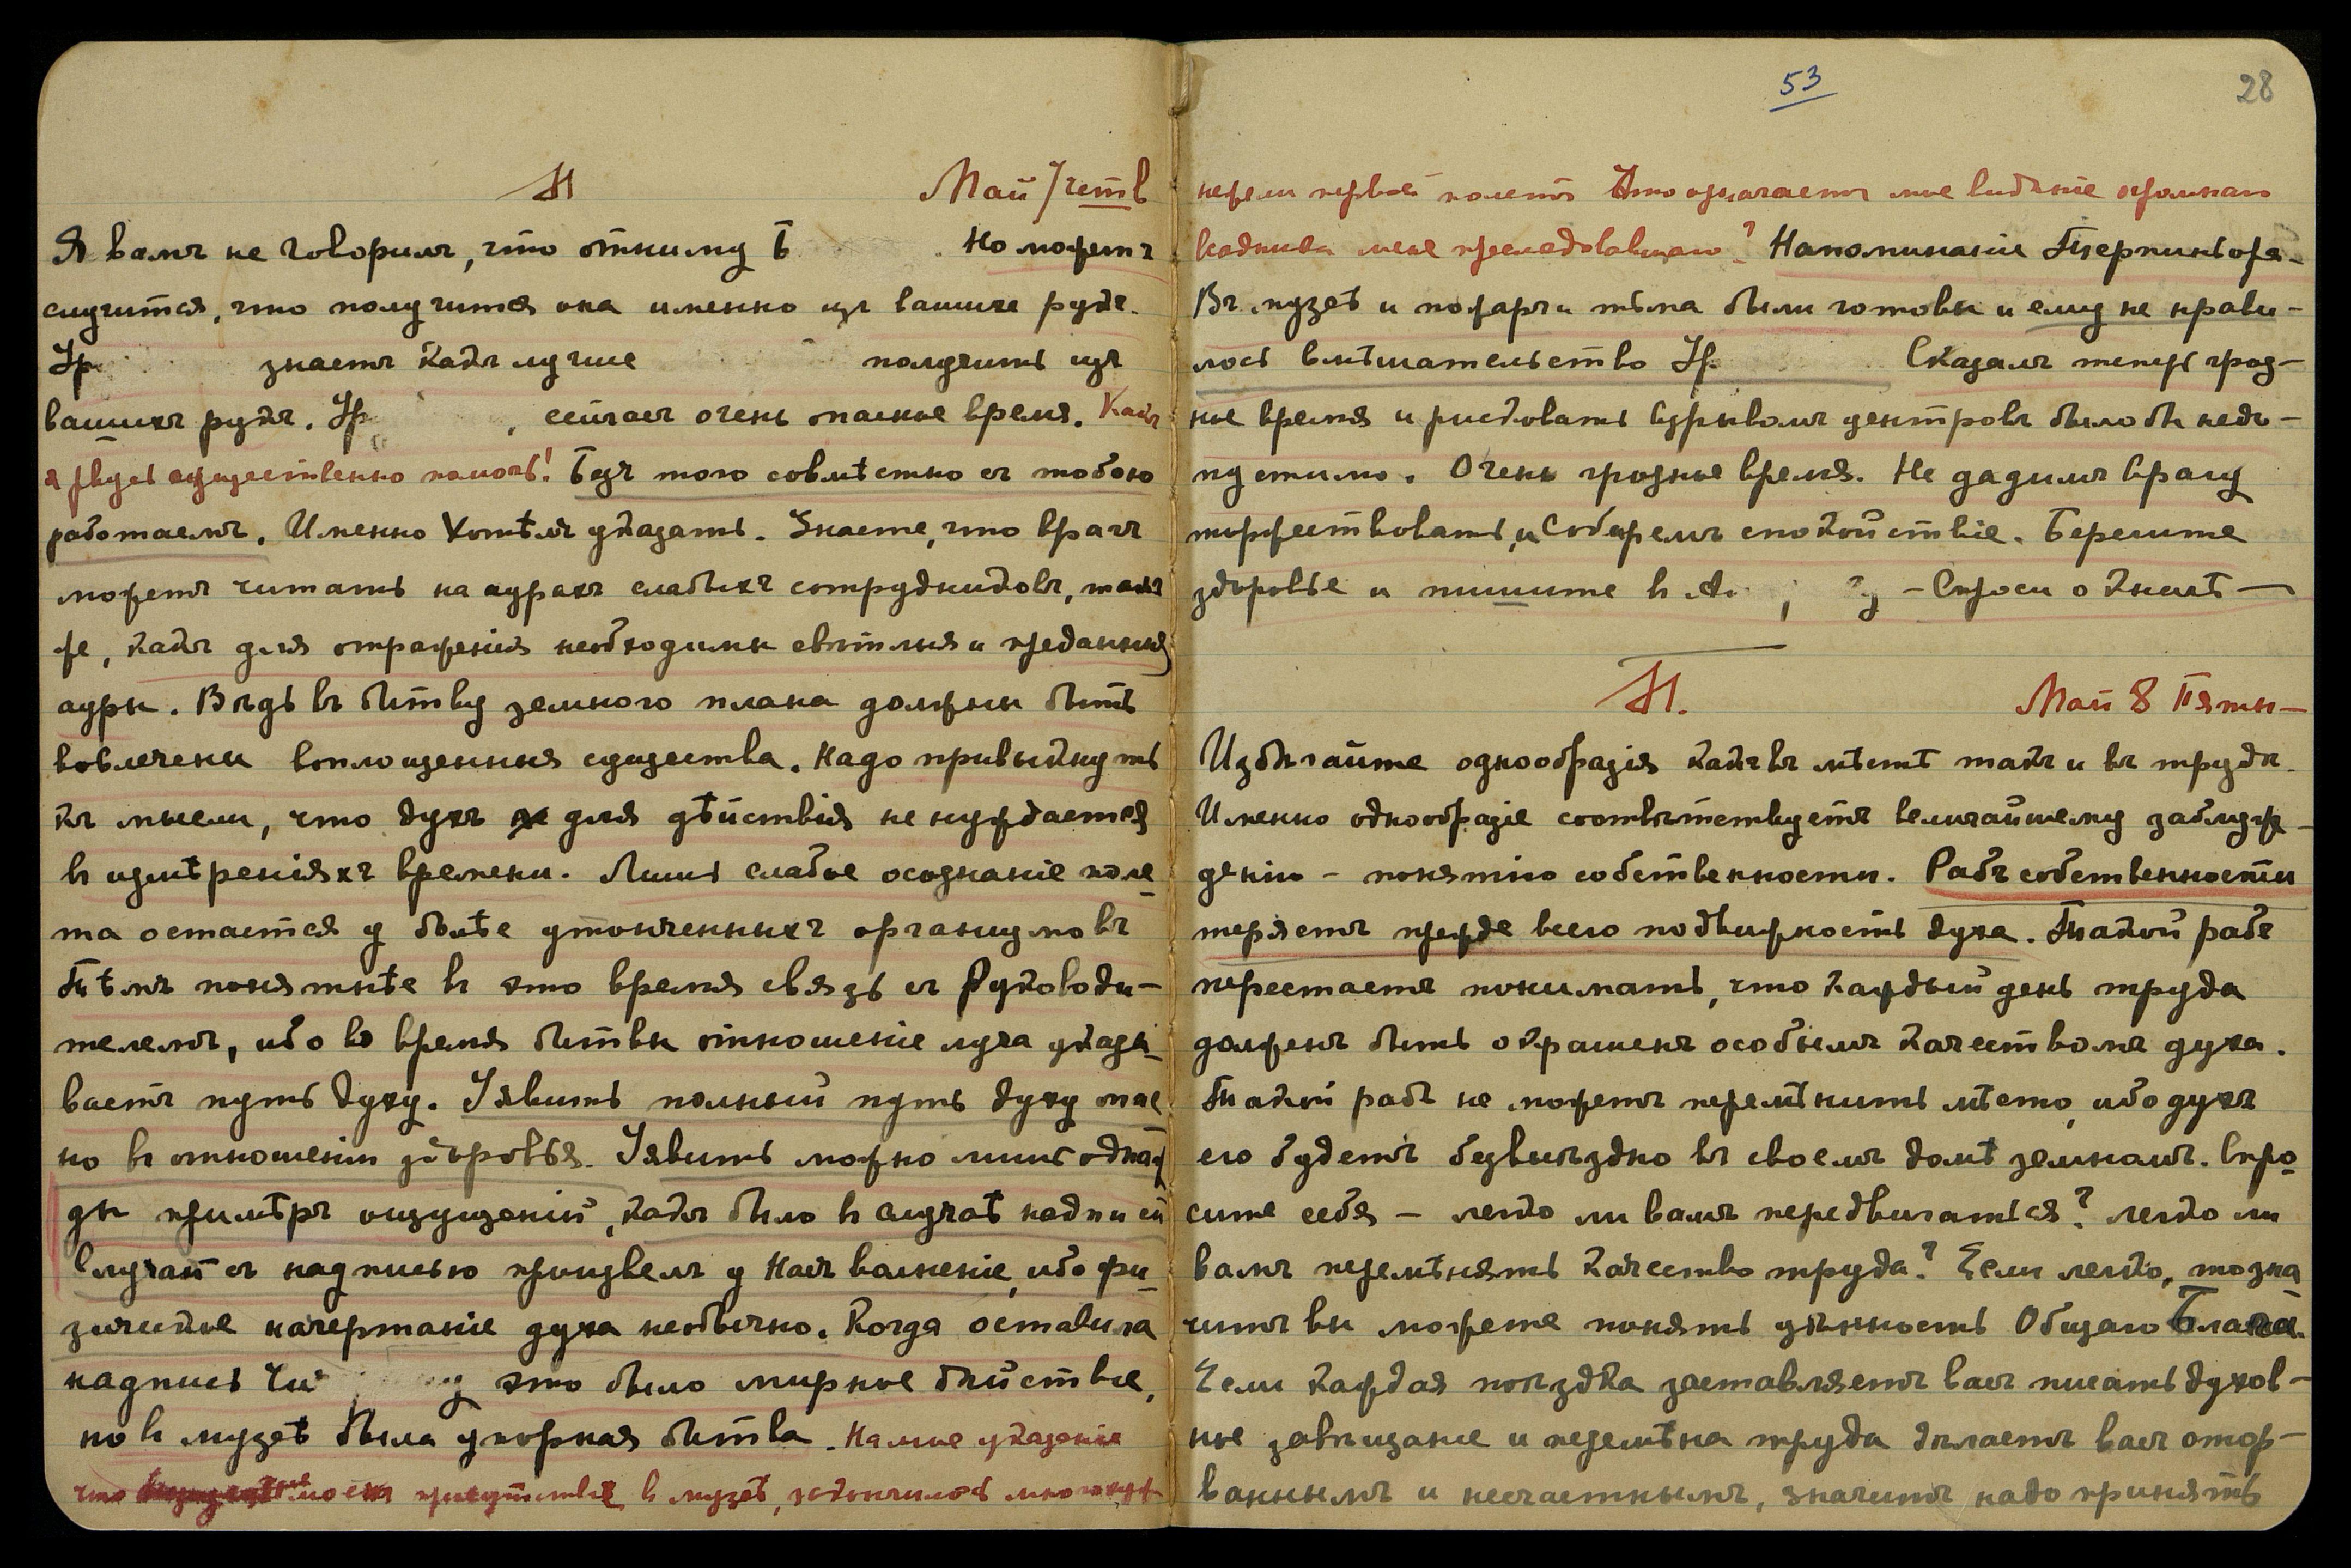 М Май 7 четв
Я вамъ не говорилъ, что отниму Б . Но можетъ
случится, что получится она именно изъ вашихъ рукъ.
Ур знаетъ какъ лучше получить изъ
вашихъ рукъ. Ур , сейчасъ очень опасное время. Какъ
я рвусь существенно помочь! Безъ того совмѣстно съ тобою
работаемъ. Именно хотѣлъ указать. Знаете, что врагъ
можетъ читать на аурахъ слабыхъ сотрудниковъ, такъ
же, какъ для отраженія необходимы свѣтлыя и преданныя
ауры. Вѣдь въ битву земного плана должны быть
вовлечены воплощенныя существа. Надо привыкнуть
къ мысли, что духъ для дѣйствія не нуждается
въ измѣреніяхъ времени. Лишь слабое осознаніе поле-
та остается у болѣе утонченныхъ организмовъ
Тѣмъ понятнѣе въ это время связь съ Руководи-
телемъ, ибо во время битвы отношеніе луча указы-
ваетъ путь духу. Уявить полный путь духу опас
но въ отношеніи здоровья. Уявить можно лишь однаж
ды примѣръ ощущеній, какъ было въ случаѣ надписи
Случай съ надписью произвелъ у Насъ волненіе, ибо фи-
зическое начертаніе духа необычно. Когда оставила
надпись Чи у это было мирное дѣйствіе,
но въ музеѣ была упорная битва. На мое указаніе
что мое присутствіе въ музеѣ, закончилось много
53
28
первый полетъ Что означаетъ мое видѣніе огромнаго
всадника меня преслѣдовавшаго? Напоминаніе
Въ музеѣ и пожары тьма были готовы и ему не нрави-
лось вмѣшательство Ур Сказалъ теперь гроз-
ное время и рисковать взрывомъ центровъ было бы недо-
пустимо. Очень грозное время. Не дадимъ врагу
торжествовать, и соберемъ спокойствіе. Берегите
здоровье и пишите въ А у – Спроси о книгѣ –
М. Май 8 Пятн–
Избѣгайте однообразія какъ въ мѣстѣ такъ и въ трудѣ.
Именно однообразіе соотвѣтствуетъ величайшему заблуж-
денію – понятію собственности. Рабъ собственности
теряетъ прежде всего подвижность духа. Такой рабъ
перестаетъ понимать, что каждый день труда
долженъ быть окрашенъ особымъ качествомъ духа.
Такой рабъ не можетъ перемѣнить мѣсто, ибо духъ
его будетъ безвыѣздно въ своемъ домѣ земномъ. Спро-
сите себя – легко ли вамъ передвигаться? легко ли
вамъ перемѣнять качество труда? Если легко, то зна
читъ вы можете понять цѣнность Общаго Блага.
Если каждая поѣздка заставляетъ васъ писать духов-
ное завѣщаніе и перемѣна труда дѣлаетъ васъ отор-
ваннымъ и несчастнымъ, значитъ надо принять